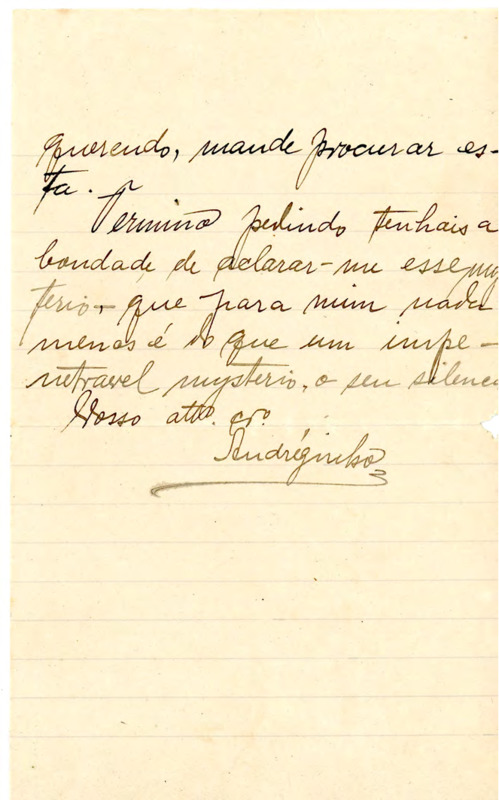 querendo, mande procurar es-
ta. –
Termino pedindo tenhais a
bondade de aclarar-me esse mys
terio, que para mim nada
menos é do que um impe-
netravel mysterio, o seu silenc
Vosso atto. cro.
Andréginho